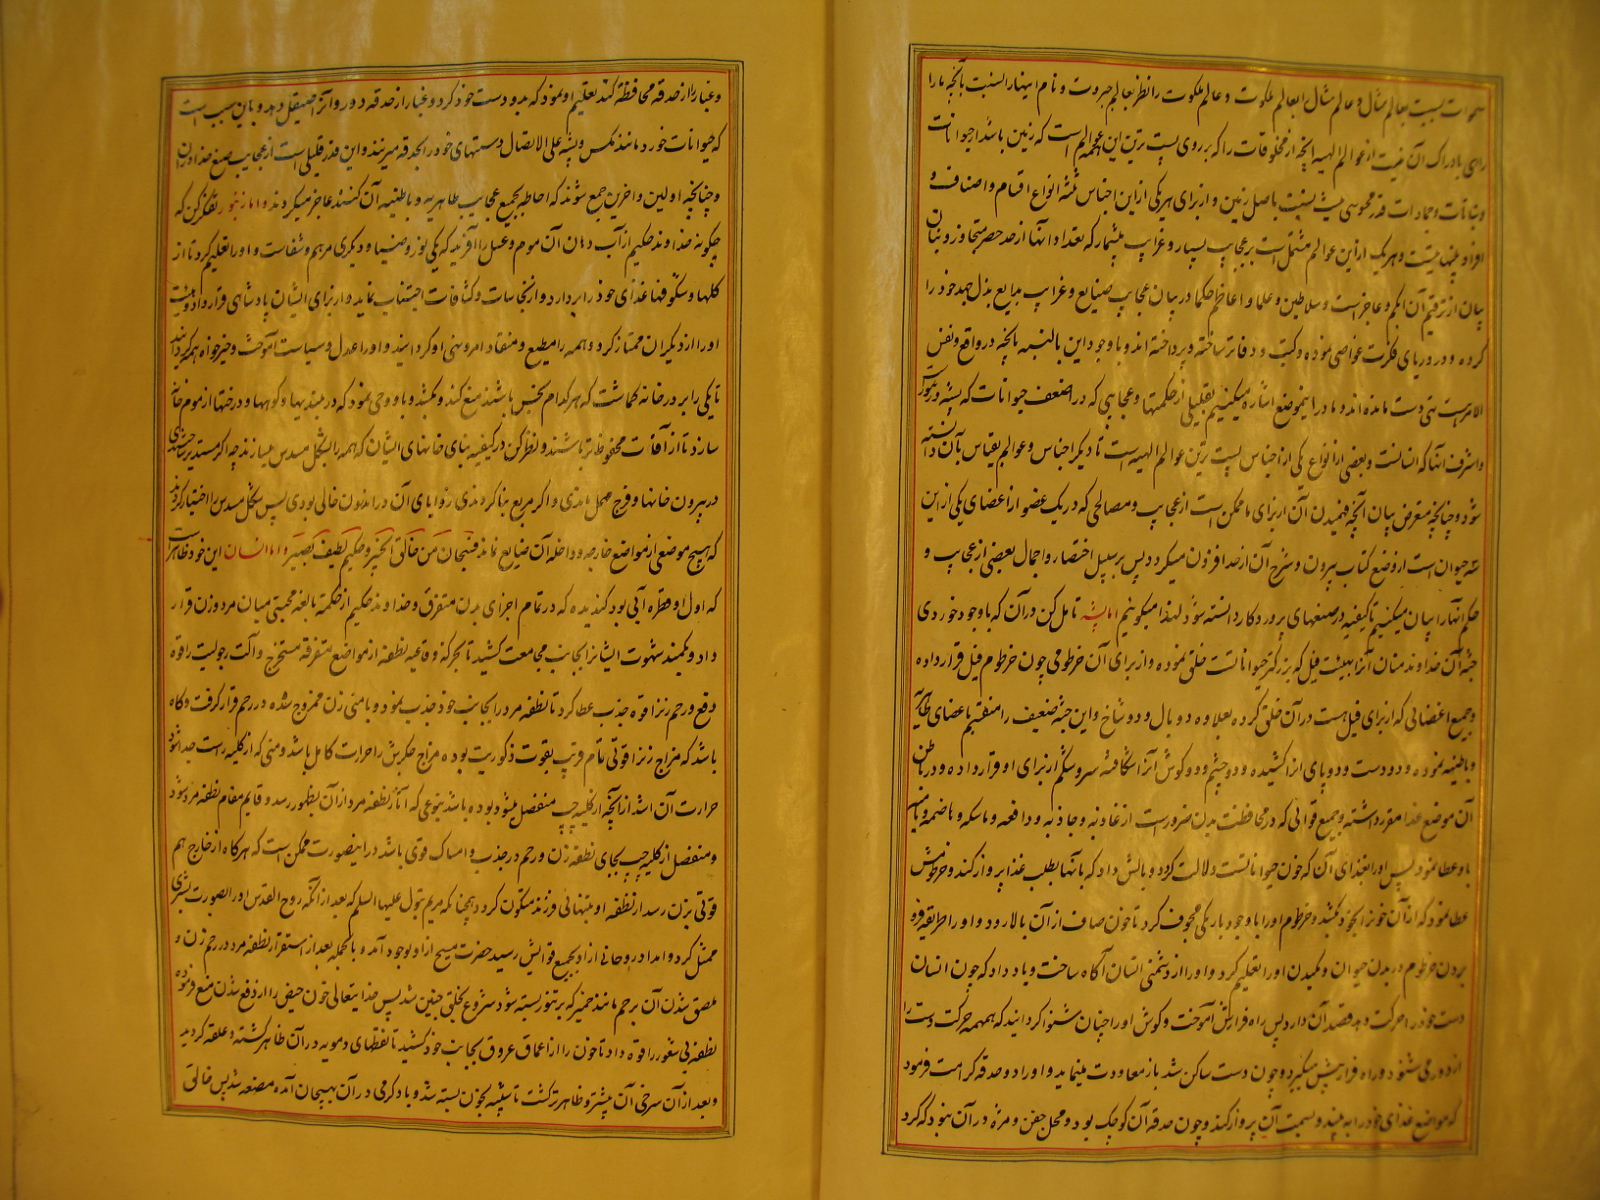 سموات نسبت بعالم مثال و عالم مثال با عالم ملکوت و عالم ملکوت را نظر بعالم جبروت و نام اینها را نسبت بآنچه ما را
راهی بادراک آن نیست از عوالم الهیه آنچه از مخلوقات را که بر روی پست ترین این عوالم است که زمین باشد از حیوانات
و نباتات و جمادات قدر محسوسی نیست نسبت باصل زمین و از برای هر یکی از این اجناس ثلثه انواع اقسام و اصناف و
افراد بینهایتست و هر یک از این عوالم مشتمل است بر عجایب بسیار و غرایب بیشمار که تعداد آنها از حد حصر متجاوز و زبان
بیان از ترقیم آن ابکم و عاجز است و سلاطین و علما و اعاظم حکما در بیان عجایب صنایع و غرایب بدایع بذل جهد خود را
کرده و در دریای فکرت غواصی نموده و کتب و دفاتر ساخته و پرداخته اند و با وجود این بالنسبه بآنچه در واقع و نفس
الامر هست تهی دست مانده اند و ما در اینموضع اشاره میکنیم بقلیلی از حکمتها و عجایبی که در اضعف حیوانات که پشه و زنبور
و اشرف آنها که انسانست و بعضی از انواع یکی از اجناس پست ترین عوالم الهیه است تا دیگر اجناس و عوالم بقیاس بآن دانسته
شود و چنانچه متعرض بیان آنچه فهمیدن آن از برای ما ممکن است از عجایب و مصالحی که در یک عضو از اعضای یکی از این
سه حیوان است از وضع کتاب بیرون و شرح آن از حد افزون میگردد پس بر سبیل اختصار و اجمال بعضی از عجایب و
حکم آنها را بیان میکنیم تا کیفیه در صنعهای پروردگار دانسته شود لهذا میگوئیم اما پشه تامل کن در آن که با وجود خوردی
جثه آن خداوند منان آنرا بهیئت فیل که بزرگتر حیواناتست خلق نموده و از برای آن خرطومی چون خرطوم فیل قرار داده
و جمیع اعضائی که از برای فیل هست در آن خلق کرده بعلاوه دو بال و دو شاخ و این جثه ضعیف را منقسم باعضای ظاهره
و باطنیه نموده و دو دست و دو پای از آن کشیده و دو چشم و دو گوش آنرا شکافته سر و شکم از برای او قرار داده و در باطن
آن موضع غذا مقرر داشته و جمیع قوائی که در محافظت بدن ضرور است از غاذیه و جاذبه و دافعه و ماسکه و هاضمه و نامیه
باو عطا نمود پس او را بغذای آن که خون حیواناتست دلالت کرد و دو بالش داد که بآنها بطلب غذا پرواز کند و خرطومش
عطا نمود که از آن خون را بخود کشد و خرطوم او را با وجود باریکی مجوف کرد تا خون صاف از آن بالا رود و او را طریقه فرو
بردن خرطوم در بدن حیوان و مکیدن او را تعلیم کرد و او را از دشمنی انسان آگاه ساخت و یاد داد که چون انسان
دست خود را حرکت دهد قصد آن دارد پس راه فرارش آموخت و گوش او را چنان شنوا گردانید که همهمه حرکت دست را
از دور می شنود و راه فرار پیش میگیرد و چون دست ساکن شد باز معاودت مینماید و او را دو حدقه کرامت فرمود
که مواضع غذای خود را به بیند و بسمت آن پرواز کند و چون حدقه آن کوچک بود و محل جفن و مژه در آن نبود که گرد
و غبار را از حدقه محافظة کند تعلیم او نمود که بدو دست خود گرد و غبار از حدقه دور و آنرا صیقل دهد و باین سبب است
که حیوانات خورد مانند مگس و پشه علی الاتصال دستهای خود را بحدقه میزنند و این قدر قلیلی است از عجایب صنع خدا در آن
و چنانچه اولین و اخرین جمع شوند که احاطه بجمیع عجایب ظاهریه و باطنیه آن کنند عاجز میگردند و اما زنبور تفکر کن که
چگونه خداوند حکیم از آب دهان آن موم و عسل را آفریند که یکی نور و ضیا و دیگری مرهم و شفاست و او را تعلیم کرد تا از
گلها و شکوفها غذای خود را بردارد و از نجاسات و کثافات اجتناب نماید و از برای ایشان پادشاهی قرار داد و هیئت
او را از دیگران ممتاز کرد و همه را مطیع و منقاد امر و نهی او گردانید و او را عدل و سیاست آموخت و خیرخواه همه گردانید
تا یکی را بر در خانه گماشت که هر کدام نجس باشند منع کند و بکشد و باو وحی نمود که در بلندیها و کوهها و درختها از موم خانه
سازد تا از آفات محفوظ تر باشند و نظر کن در کیفیة بنای خانهای ایشان که همه را بشکل مسدس میسازند چه اگر مستدیر ساختندی
در بیرون خانها فرج مهمل ماندی و اگر مربع بنا کردندی زوایای آن در اندرون خالی بودی پس شکل مسدس را اختیار کردند
که هیچ موضعی از مواضع خارجه و داخله آن ضایع نماند فسبحان من خالق الخبیر و حکیم لطیف بصیر و اما انسان این خود ظاهر است
که اول او قطره آبی بود گندیده که در تمام اجزای بدن متفرق و خداوند حکیم از حکمة بالغه محبتی میان مرد و زن قرار
داد و بکمند شهوت ایشانرا بجانب مجامعت کشید تا بحرکة وقاعیه نطفه از مواضع متفرقه مستخرج و آلت رجولیت را قوه
دفع و رحم زنرا قوه جذب عطا کرد تا نطفه مرد را بجانب خود جذب نمود و با منی زن ممزوج شده در رحم قرار گرفت و گاه
باشد که مزاج زنرا قوتی تام قریب بقوت ذکوریت بوده مزاج جگرش را حرارت کامل باشد و منی که از کلیه راست جدا شود
حرارت آن اشد از آنچه از کلیه چپ منفصل میشود بوده باشد بنوعی که آثار نطفه مرد از آن بظهور رسد و قایم مقام نطفه مرد شود
و منفصل از کلیه چپ بجای نطفه زن و رحم در جذب و امساک قوی باشد در اینصورت ممکن است که هر گاه از خارج هم
قوتی بزن رسد از نطفه او بتنهائی فرزند متکون گردد چنانکه مریم بتول علیها السلم که بعد از آنکه روح القدس او را بصورت بشری
ممثل گردد و امداد روحانی از او بجمیع قوایش رسید حضرت مسیح از او بوجود آمد و بالجمله بعد از استقرار نطفه مرد در رحم زن و
ملصق شدن آن برحم مانند خمیر که بر تنور بسته شود شروع بخلق جنین شد پس خدایتعالی خون حیض را از دفع شدن منع فرموده
نطفه بی شعور را قوه داد تا خون را از اعماق عروق بجانب خود کشید تا نقطهای دمویه در آن ظاهر گشته و علقه گردید
و بعد از آن سرخی آن بیشتر و ظاهرتر گشت تا شبیه بخون بسته شد و باد گرمی در آن بهیجان آمده مضغه شد پس خالق